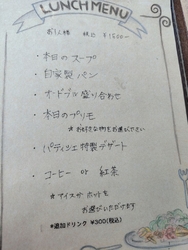 LUNCH MENU
お1人様 税込 ¥1500-
・本日のスープ
・自家製パン
・オードブル盛り合わせ
・本日のプリモ
*お好きな物をお選びください
・パティシエ特製デザート
・コーヒー or 紅茶
*アイスかホットを
お選びいただけます
*追加ドリンク ¥300(税込)